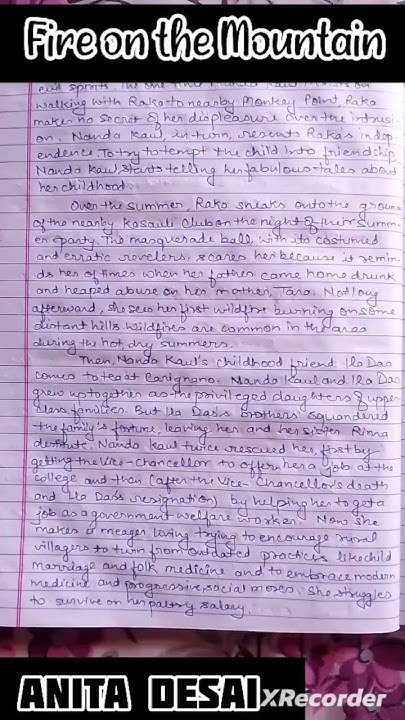 Fire on the Mountain
walking with Raka to nearby Monkey Point, Raka
makes no secret of her displeasure over the intrusi-
on. Nanda Kaul, in turn, resents Raka's indep-
endence. To try to tempt the child into friendship,
Nanda Kaul starts telling her fabulous tales about
her childhood.
Over the summer, Raka sneaks onto the groun
of the nearby Kosauli Club on the night of their summ-
er party. The masquerade ball, with its costumed
and erratic revelers, scares her because it remin-
ds her of times when her father came home drunk
and heaped abuse on her mother, Tara. Not long
afterward, she sees her first wildfire burning on some
distant hills. Wildfires are common in the area
during the hot, dry summers.
Then, Nanda Kaul's childhood friend Ila Das
comes to tea at Carignano. Nanda Kaul and Ila Das
grew up together as the privileged daughters of upper
class families. But Ila Das's brothers squandered
the family's fortune, leaving her and her sister Rima
destitute. Nanda Kaul twice rescued her, first by
getting the Vice-Chancellor to offer her a job at the
college and then (after the Vice-Chancellor's death
and Ila Das's resignation) by helping her to get a
job as a government welfare worker. Now she
makes a meager living trying to encourage rural
villagers to turn from outdated practices like child
marriage and folk medicine and to embrace modern
medicine and progressive social mores. She struggles
to survive on her paltry salary.
ANITA DESAI
XRecorder